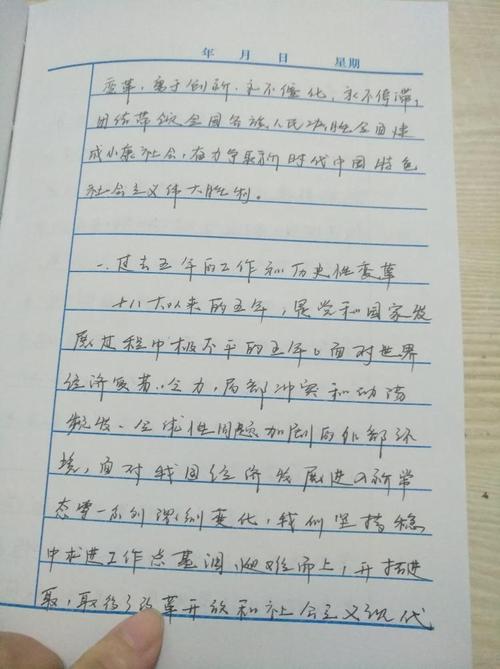 年 月 日 星期
变革,勇于创新,永不僵化,永不停滞,
团结带领全国各族人民决胜全面建
成小康社会,奋力夺取新时代中国特色
社会主义伟大胜利。
一、过去五年的工作和历史性变革
十八大以来的五年,是党和国家发
展进程中极不平的五年。面对世界
经济复苏乏力,局部冲突和动荡
频发、全球性问题加剧的外部环
境,面对我国经济发展进入新常
态等一系列深刻变化,我们坚持稳
中求进工作总基调,迎难而上,开拓进
取,取得了改革开放和社会主义现代